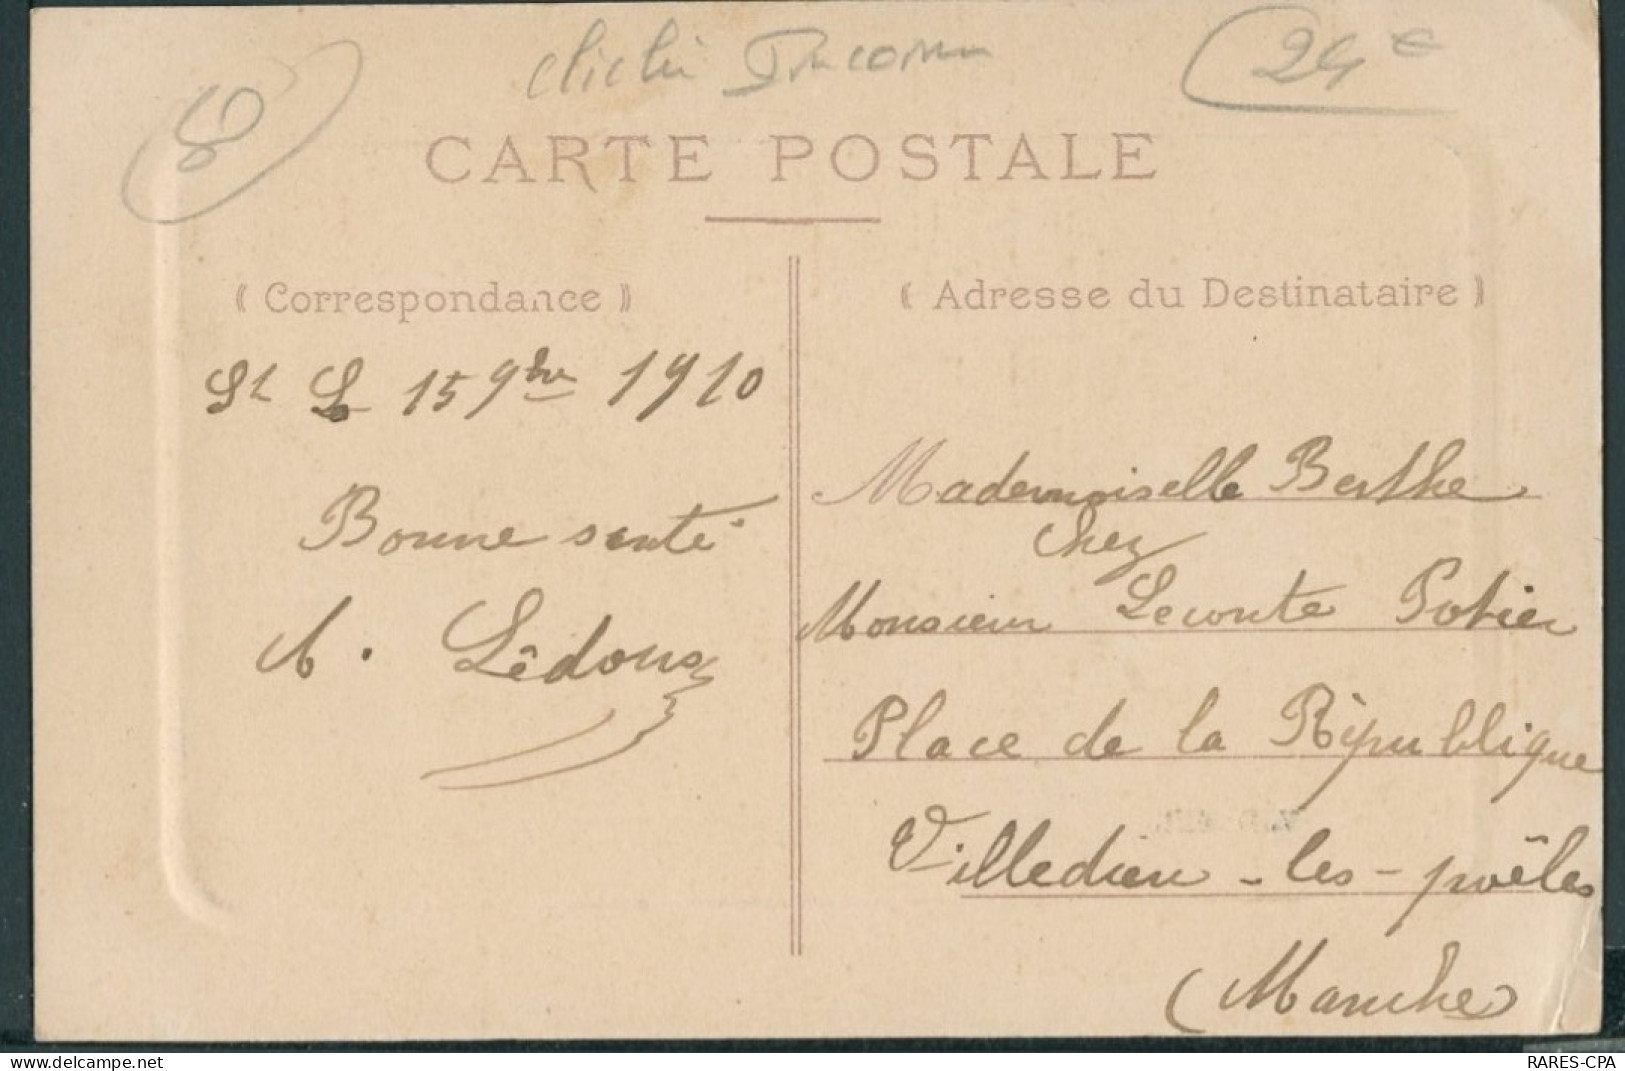 cliché Inconnu
24 €
CARTE POSTALE
( Correspondance )
( Adresse du Destinataire )
St L 15 9bre 1910
Bonne santé
A. Lêdoux
Mademoiselle Berthe
Chez
Monsieur Leconte Potier
Place de la République
Villedieu-les-poêles
(Manche)
RARES-CPA